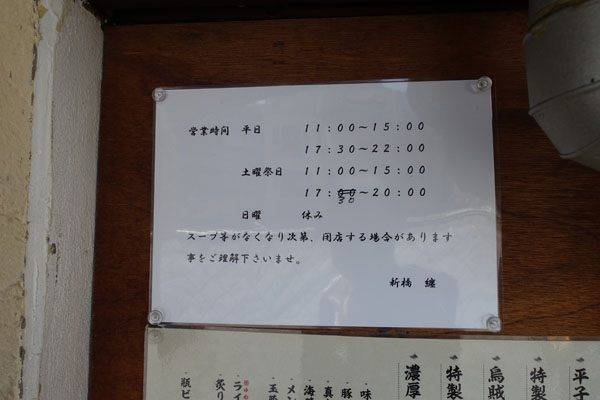 営業時間 平日 11:00~15:00
17:30~22:00
土曜祭日 11:00~15:00
17:30~20:00
日曜 休み
スープ等がなくなり次第、閉店する場合があります
事をご理解下さいませ。
新橋 纏
平子
特製
烏賊
特製
濃厚
味
豚
真
海
メン
玉
ライ
炙り
瓶ビ